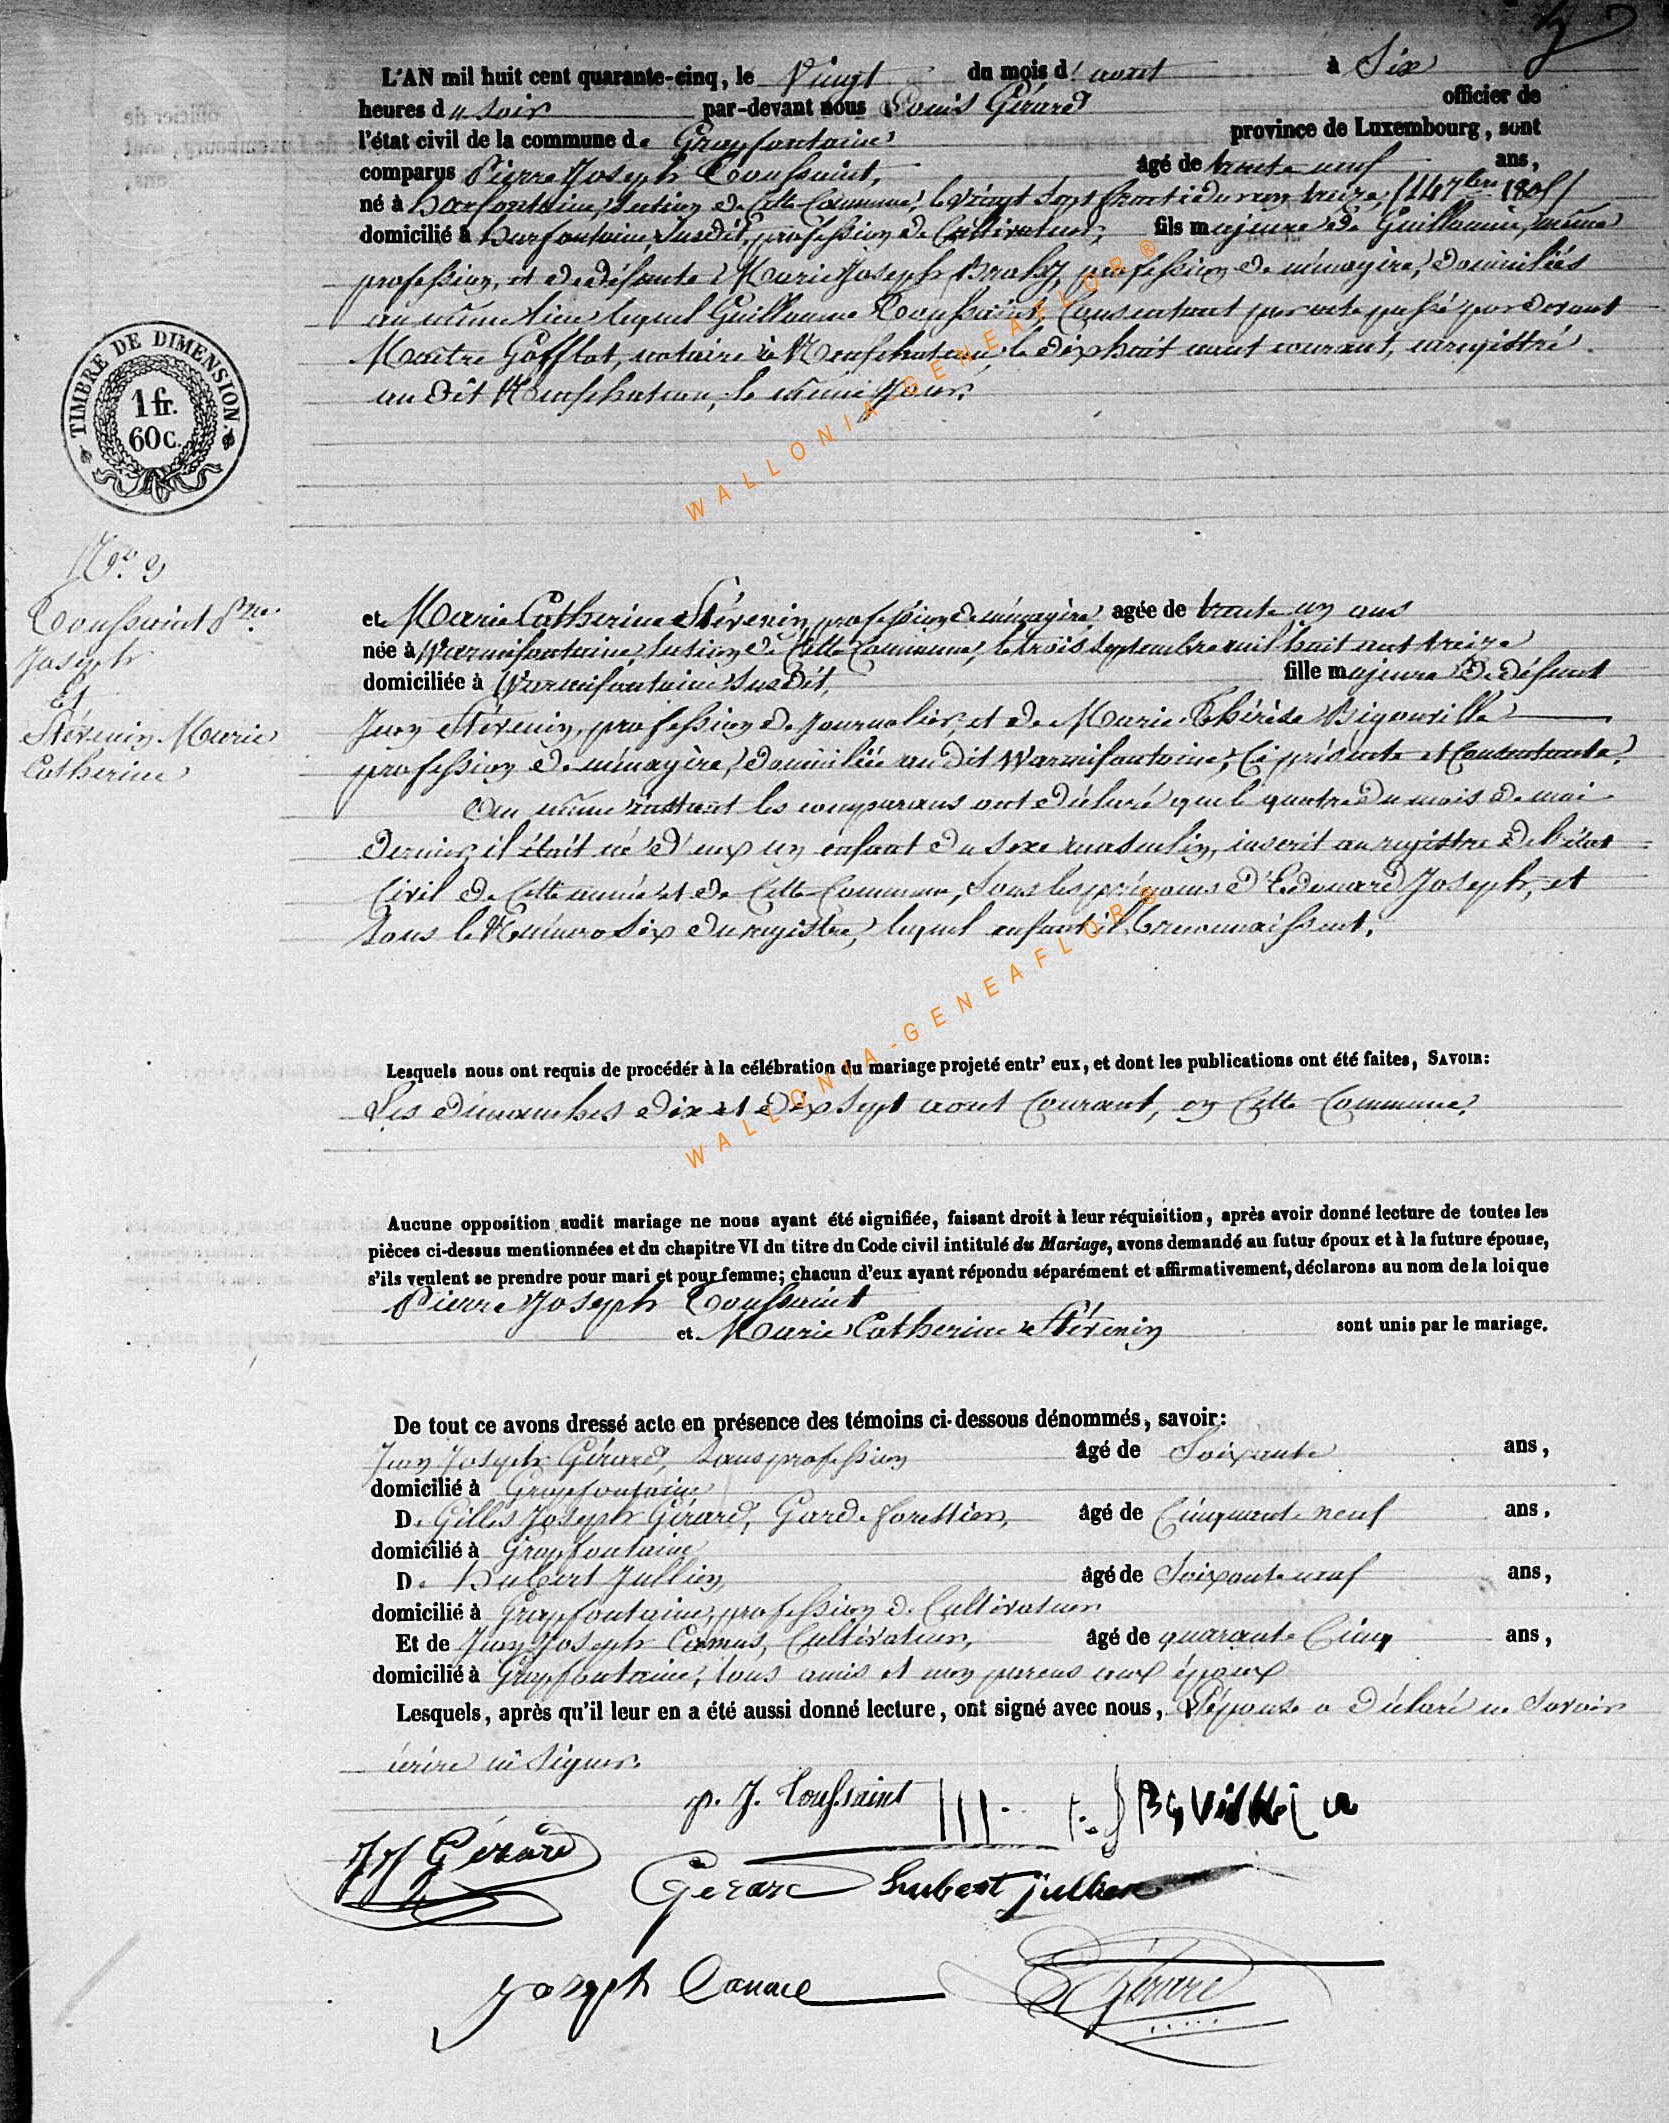 L'AN mil huit cent quarante-cinq, le Vingt du mois d' aout à Six
heures du soir par-devant nous Louis Gérard officier de
l'état civil de la commune de Grapfontaine province de Luxembourg, sont
comparus Pierre Joseph Toussaint, âgé de trente neuf ans,
né à Harfontaine, section de cette Commune, le vingt sept fructidor an treize, (14 7bre 1805)
domicilié à Harfontaine, susdit, profession de Cultivateur, fils majeure de Guillaume, même
profession, et de défunte Marie Joseph Brahy, profession de ménagère, domiciliés
au même lieu, lequel Guillaume Toussaint, Consentant par acte passé par devant
Maître Gofflot, notaire à Neufchateau, le dixhuit aout courant, enregistré
au dit Neufchateau, le même jour.
TIMBRE DE DIMENSION.
1 fr.
60 c.
No. 9
Toussaint Prre.
Joseph
Et
Stévenin Marie
Catherine
et Marie Catherine Stévenin, profession de ménagère, agée de trente un ans
née à Warmifontaine, section de cette Commune, le trois septembre mil huit cent treize
domiciliée à Warmifontaine susdit, fille majeure de défunt
Jean Stévenin, profession de journalier, et de Marie Thérèse Bigonville
profession de ménagère, domiciliée au dit Warmifontaine, Ci présente et Consentante.
Au même instant les comparans ont déclaré que le quatre du mois de mai
dernier, il était né d'eux un enfant du sexe masculin, inscrit au registre de l'état
Civil de Cette année et de Cette Commune, sous les prénoms d'Edouard Joseph, et
sous le Numéro Six du registre, lequel enfant il reconnaissent.
Lesquels nous ont requis de procéder à la célébration du mariage projeté entr' eux, et dont les publications ont été faites, SAVOIR:
Les dimanches dix et dix sept aout Courant, en Cette Commune.
Aucune opposition audit mariage ne nous ayant été signifiée, faisant droit à leur réquisition, après avoir donné lecture de toutes les
pièces ci-dessus mentionnées et du chapitre VI du titre du Code civil intitulé du Mariage, avons demandé au futur époux et à la future épouse,
s'ils veulent se prendre pour mari et pour femme; chacun d'eux ayant répondu séparément et affirmativement, déclarons au nom de la loi que
Pierre Joseph Toussaint
et Marie Catherine Stévenin sont unis par le mariage.
De tout ce avons dressé acte en présence des témoins ci-dessous dénommés, savoir:
Jean Joseph Gérard, sans profession âgé de Soixante ans,
domicilié à Grapfontaine
De Gilles Joseph Gérard, Garde forestier, âgé de Cinquante neuf ans.
domicilié à Grapfontaine
De Hubert Jullien, âgé de Soixante neuf ans,
domicilié à Grapfontaine, profession de Cultivateur
Et de Jean Joseph Camus, Cultivateur, âgé de quarante Cinq ans,
domicilié à Grapfontaine, tous amis et non parens aux époux
Lesquels, après qu'il leur en a été aussi donné lecture, ont signé avec nous, L'épouse a déclaré ne savoir
écrire ni signer.
p. J. Toussaint
JJ Gérard
Gerard hubert jullien
Joseph Camus
L Gérard
WALLONIA-GENEAFLOR®
WALLONIA-GENEAFLOR®